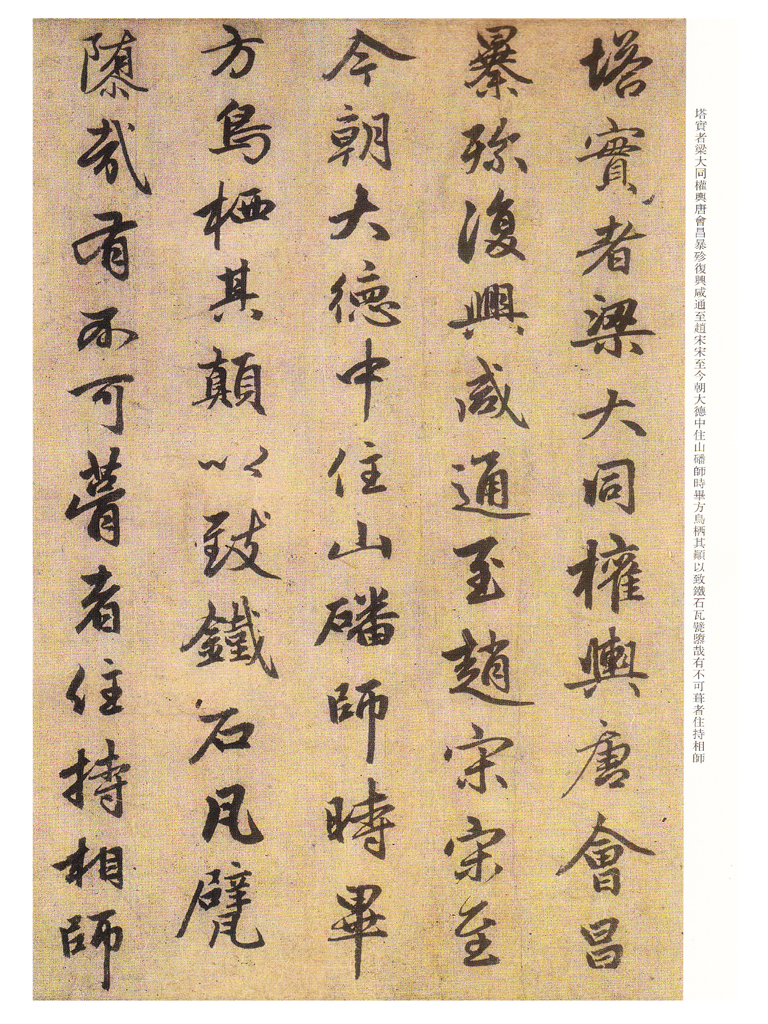 塔實者梁大同權輿唐會昌暴殄復興咸通至趙宋宋至今朝大德中住山磻師時畢方鳥栖其顛以致鐵石瓦甓隳哉有不可葺者住持相師
塔實者梁大同權輿唐會昌
暴殄復興咸通至趙宋宋至
今朝大德中住山磻師時畢
方鳥栖其顛以致鐵石瓦甓
隳哉有不可葺者住持相師